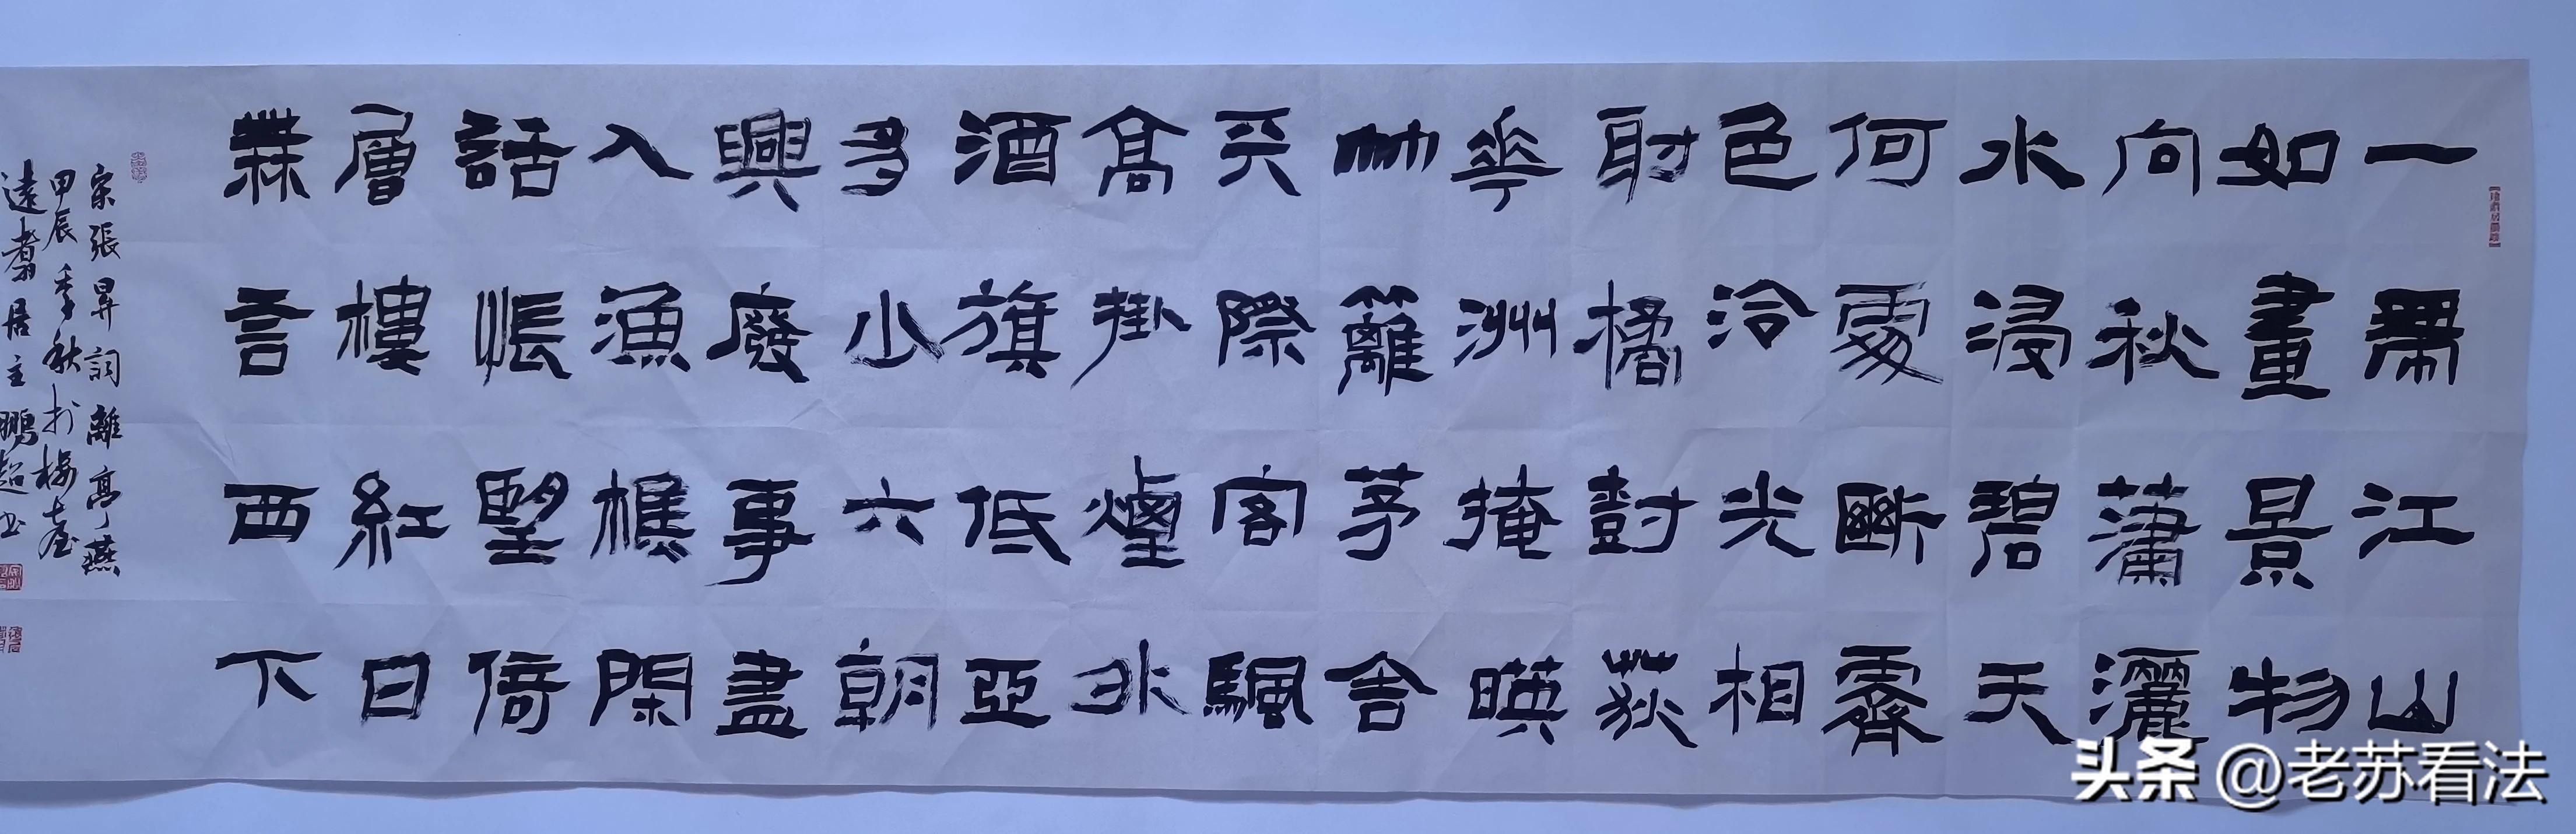 一帶江山
如畫景物
向秋瀟灑
水浸碧天
何處斷霽
色泠光相
射橘對荻
花洲掩暎
竹籬茅舍
天際客颿
高掛煙外
酒旗低亞
多少六朝
興廢事盡
入漁樵閑
話悵望倚
層樓紅日
無言西下
宋張昇詞離亭燕
甲辰季秋於梅
遠翥居主鵬超书
头条 @老苏看法